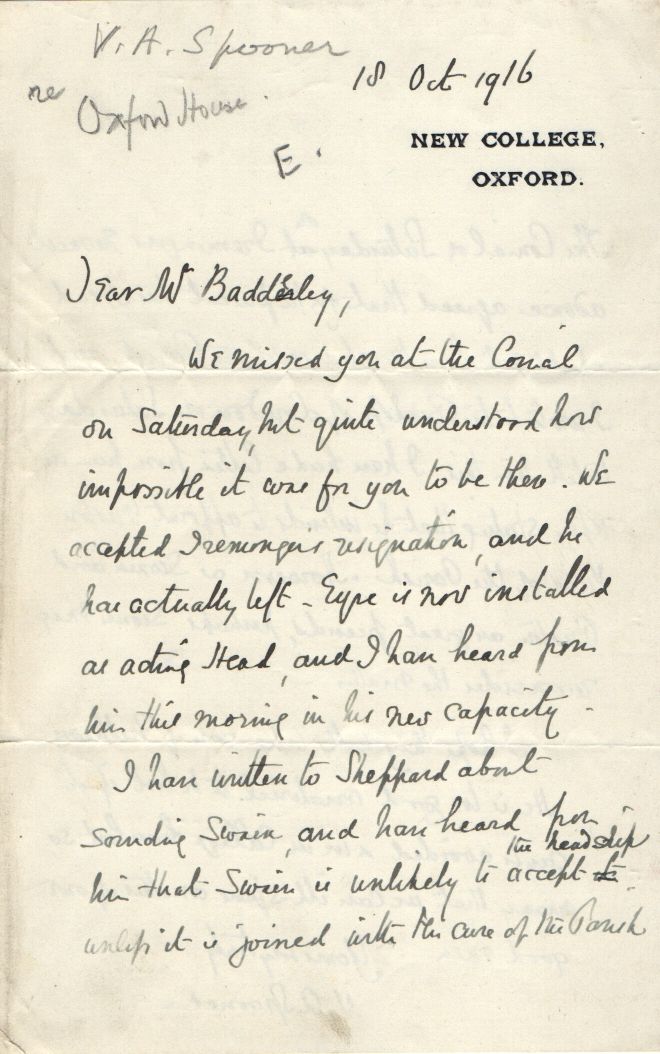 V. A. Spooner
re Oxford House.
E.
18 Oct 1916
NEW COLLEGE,
OXFORD.
Dear Mr Baddeley,
We missed you at the Concil
on Saturday, but quite understood how
impossible it was for you to be there. We
accepted Iremongers resignation, and he
has actually left - Eyre is now installed
as acting Head, and I have heard from
him this morning in his new capacity -
I have written to Sheppard about
sounding Swain, and have heard from
him that Swain is unlikely to accept the headship
unless it is joined with the cure of the Parish